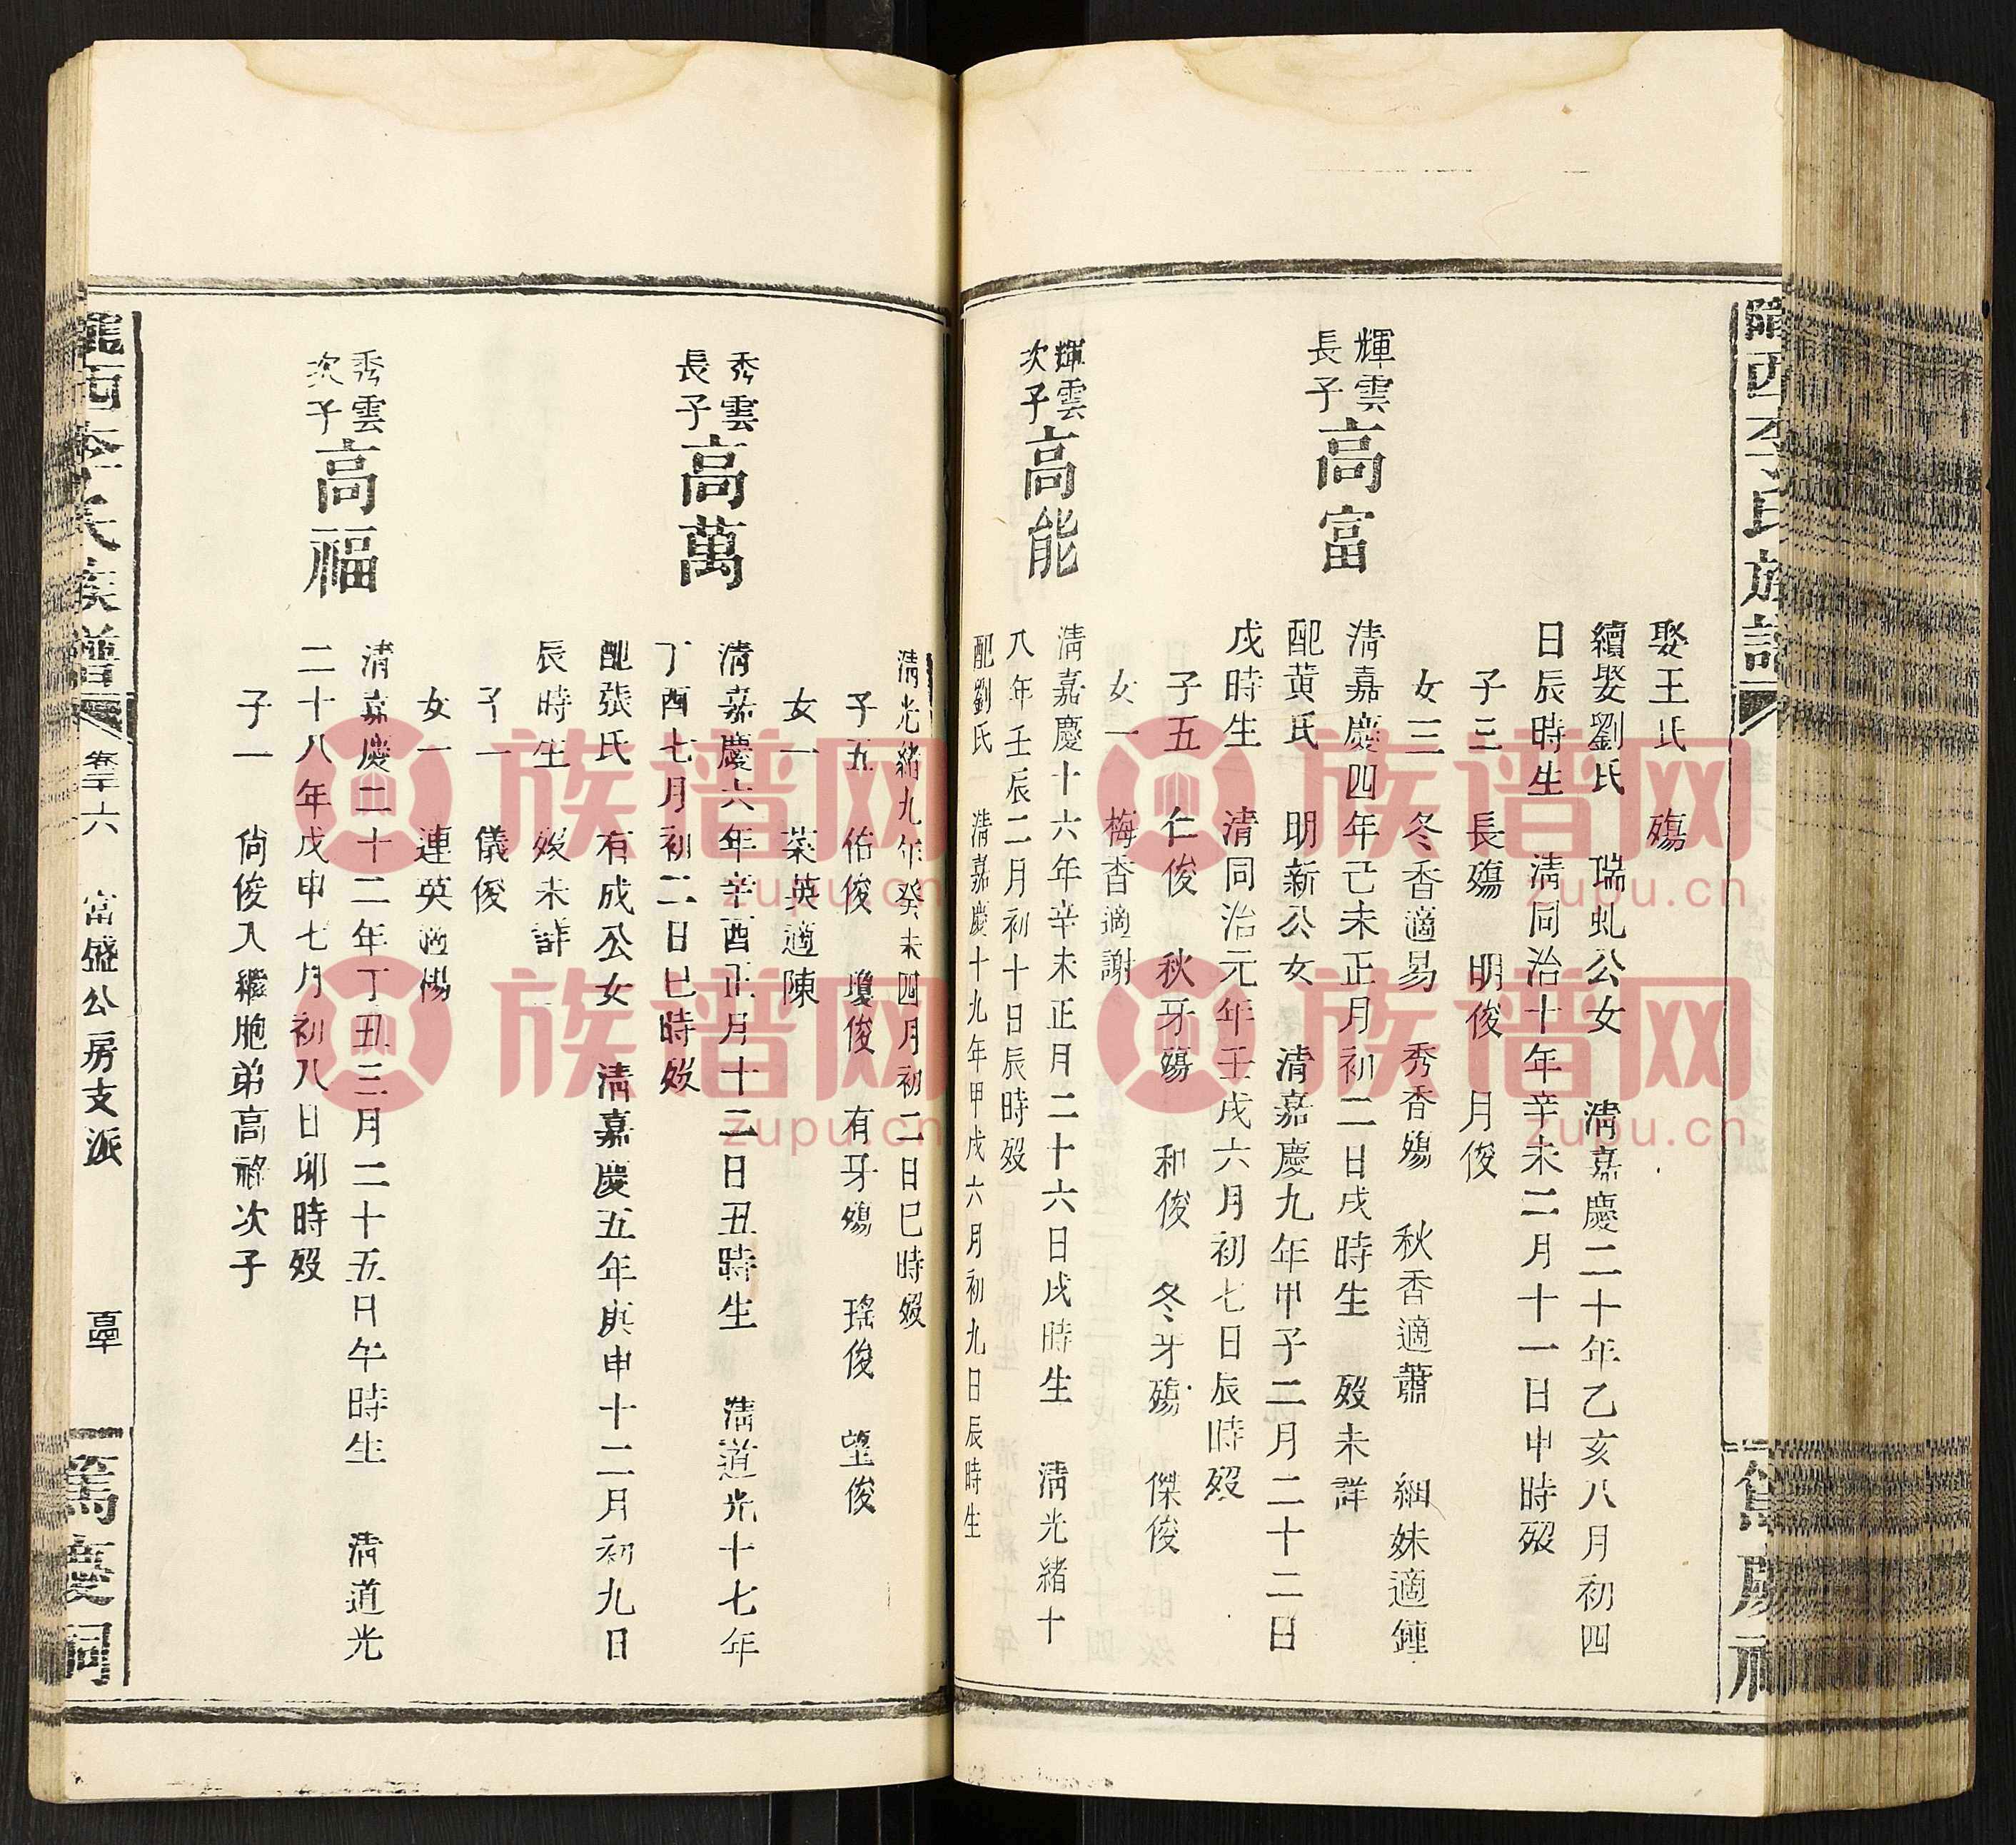 隴西李氏族譜
娶王氏 殤
續娶劉氏 瑞虬公女 清嘉慶二十年乙亥八月初四
日辰時生 清同治十年辛未二月十一日申時歿
子三 長殤 明俊 月俊
女三 冬香適易 秀香殤 秋香適蕭 細妹適鍾
輝雲長子 高富
清嘉慶四年己未正月初二日戌時生 歿未詳
配黃氏 明新公女 清嘉慶九年甲子二月二十二日
戌時生 清同治元年壬戌六月初七日辰時歿
子五 仁俊 秋牙殤 和俊 冬牙殤 傑俊
女一 梅香適謝
輝雲次子 高能
清嘉慶十六年辛未正月二十六日戌時生 清光緒十
八年壬辰二月初十日辰時歿
配劉氏 清嘉慶十九年甲戌六月初九日辰時生
清光緒九年癸未四月初二日巳時歿
子五 佑俊 瓊俊 有牙殤 瑤俊 望俊
女一 菜英適陳
秀雲長子 高萬
清嘉慶六年辛酉正月十二日丑時生 清道光十七年
丁酉七月初二日巳時歿
配張氏 有成公女 清嘉慶五年庚申十二月初九日
辰時生 歿未詳
子一 儀俊
女一 連英適楊
秀雲次子 高福
清嘉慶二十二年丁丑三月二十五日午時生 清道光
二十八年戊申七月初八日卯時歿
子一 尙俊入繼胞弟高祿次子
隴西李氏族譜 卷三十六 富盛公房支派 篤慶祠
族谱网
zupu.cn
族谱网
zupu.cn
族谱网
zupu.cn
族谱网
zupu.cn